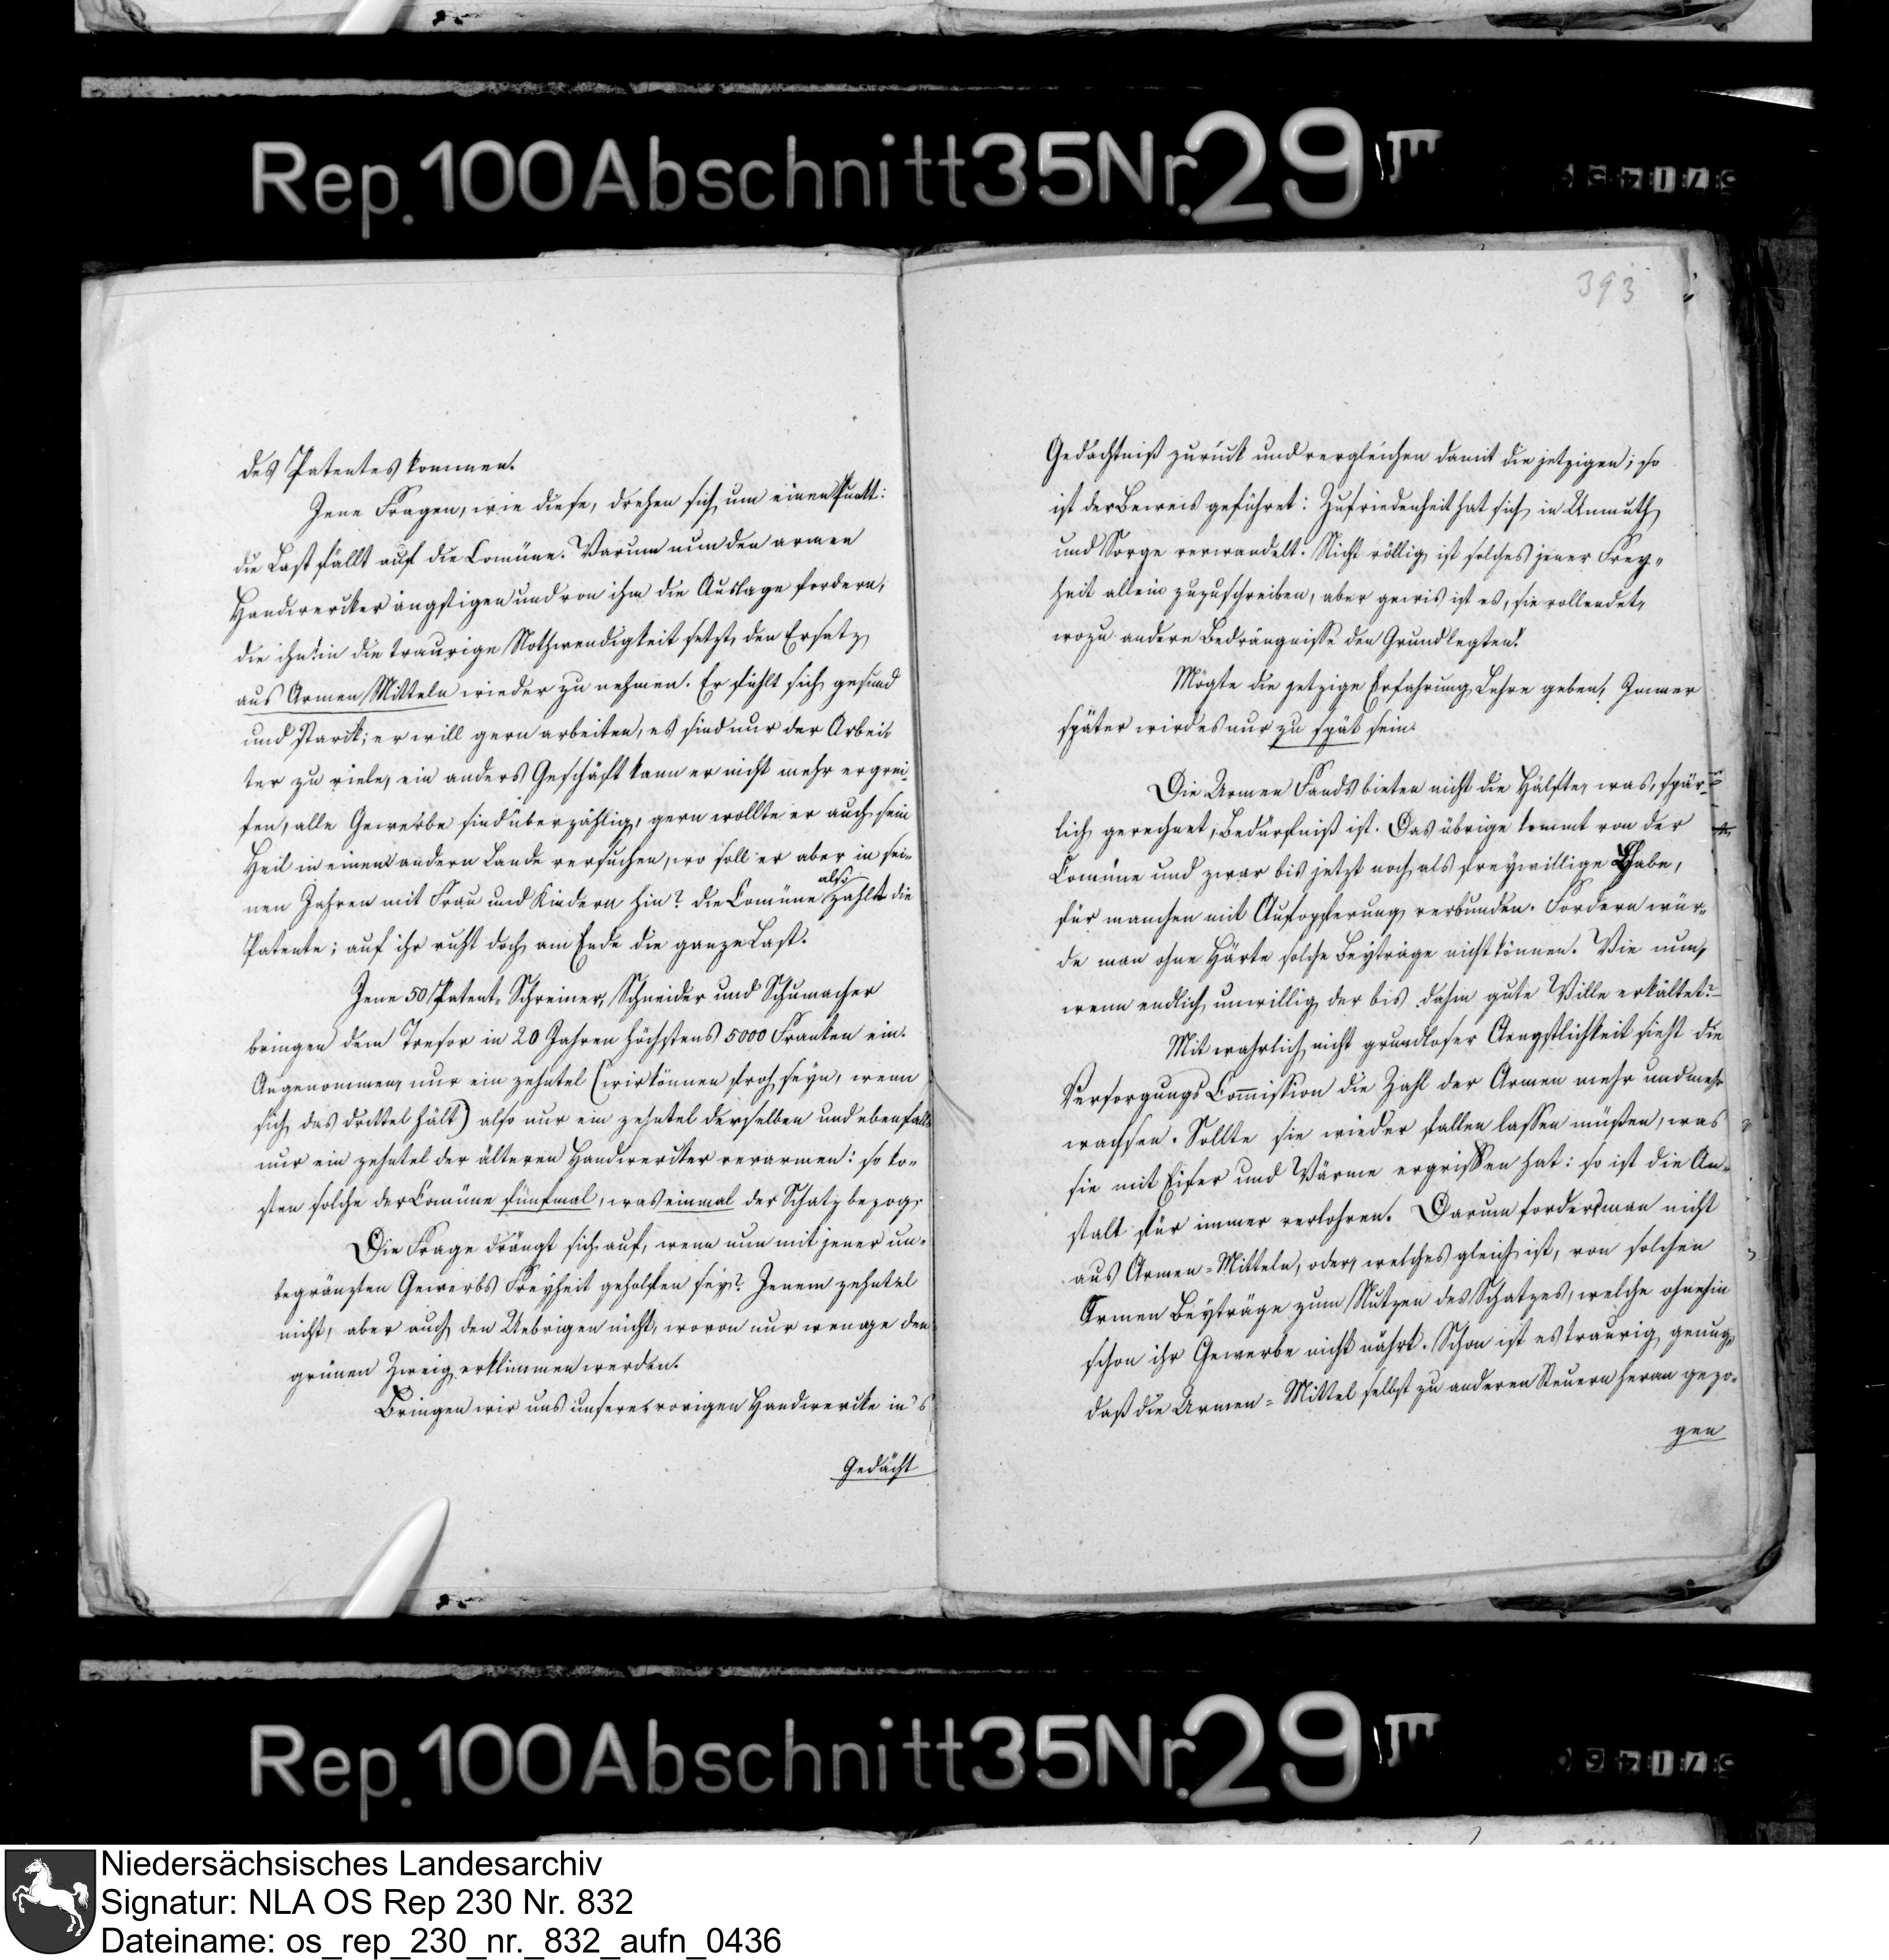 Rep. 100 Abschnitt 35 Nr. 29 III
393
des Patentes kommen.
Jene Fragen, wie diese, drehen sich um einen Punkt:
die Last fällt auf die Comüne. Warum nun den armen
Handwercker ängstigen und von ihm die Auslage fordern,
die ihn in die traurige Nothwendigkeit setzt, den Ersatz
aus Armen Mitteln wieder zu nehmen. Er fühlt sich gesund
und starck; er will gern arbeiten, es sind nur der Arbei-
ter zu viele, ein anders Geschäft kann er nicht mehr ergrei-
fen, alle Gewerbe sind überzählig, gern wollte er auch sein
Heil in einem andern Lande versuchen, wo soll er aber in sei-
nen Jahren mit Frau und Kindern hin? die Comüne also zahlt die
Patente; auf ihr ruht doch am Ende die ganze Last.
Jene 50 Patent-Schreiner, Schneider und Schumacher
bringen dem Tresor in 20 Jahren höchstens 5000 Franken ein.
Angenommen, nur ein zehntel (wir können froh seyn, wenn
sich das drittel hält) also nur ein zehntel derselben und ebenfalls
nur ein zehntel der älteren Handwercker verarmen: so ko-
sten solche der Comüne fünfmal, was einmal der Schatz bezog.
Die Frage drängt sich auf, wenn nun mit jener un-
begränzten Gewerbs Freyheit geholfen sey? Jenem zehntel
nicht, aber auch den Uebrigen nicht, wovon nur wenge den
grünen Zweig erklimmen werden.
Bringen wir uns unsere vorigen Handwercke in's
Gedächt
Gedächtniß zurück und vergleichen damit die jetzigen; so
ist der Beweis geführet: Zufriedenheit hat sich in Unmuth
und Sorge verwandelt. Nicht völlig ist solches jener Frey-
heit allein zuzuschreiben, aber gewis ist es, sie vollendet,
wozu andere Bedrängnisse den Grund legten!
Mögte die jetzige Erfahrung Lehre geben! Immer
später wird es nur zu spät sein.
Die Armen Fands bieten nicht die Hälfte, was, spär-
lich gerechnet, Bedürfniß ist. Das übrige kommt von der
Comüne und zwar bis jetzt noch als freywillige Gabe,
für manchen mit Aufopferung verbunden. Fordern wür-
de man ohne Härte solche Beyträge nicht können. Wie nun,
wenn endlich unwillig der bis dahin gute Wille erkältet?
Mit wahrlich nicht grundloser Aengstlichkeit sieht die
Versorgungs Commission die Zahl der Armen mehr und mehr
wachsen. Sollte sie wieder fallen lassen müßen, was
sie mit Eifer und Wärme ergriffen hat: so ist die An-
stalt für immer verlohren. Darum fordere man nicht
aus Armen-Mitteln, oder, welches gleich ist, von solchen
Armen Beyträge zum Nutzen des Schatzes, welche ohnehin
schon ihr Gewerbe nicht nährt. Schon ist es traurig genug,
daß die Armen-Mittel selbst zu anderen Steuern heran gezo-
gen
Rep. 100 Abschnitt 35 Nr. 29 III
Niedersächsisches Landesarchiv
Signatur: NLA OS Rep 230 Nr. 832
Dateiname: os_rep_230_nr._832_aufn_0436